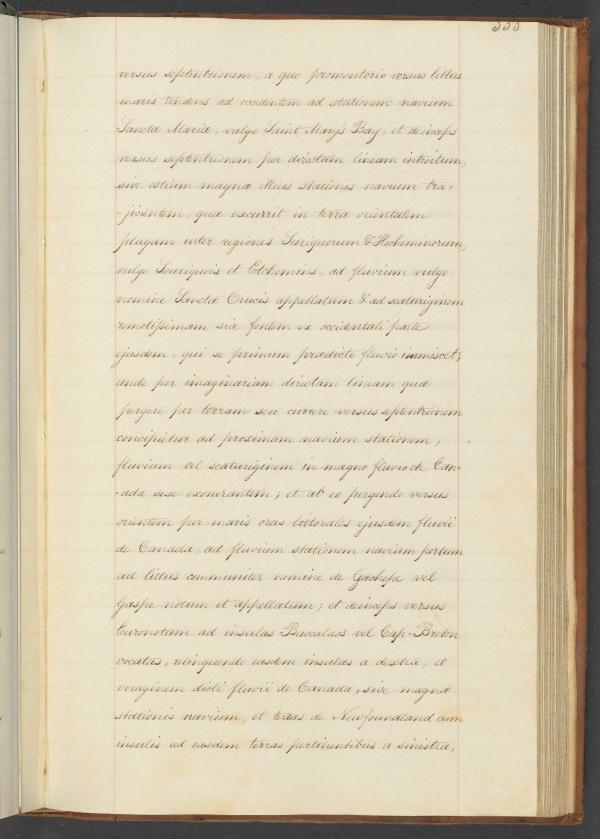 333
versus septentrionem, a quo promontorio versus littus
maris tendens ad occidentem ad stationem navium
Sanctæ Mariæ, vulgo Saint Mary's Bay, et deinceps
versus septentrionem per directam lineam introitum,
sive ostium magnæ illius stationis navium tra-
-jicientem, quæ excurrit in terræ orientalem
plagam inter regiones Suriquorum & Hecheminorum,
vulgo Souriquois et Etchemins, ad fluvium vulgo
nomine Sanctæ Crucis appellatum & ad scaturiginem
remotissimam sive fontem ex occidentali parte
ejusdem, qui se primum prædicto fluvio immiscet;
unde per imaginariam directam lineam quæ
pergere per terram seu currere versus septentrionem
concipietur ad proximam navium stationem,
fluvium vel scaturiginem in magno fluvio de Can-
-ada sese exonerantem; et ab eo pergendo versus
orientem per maris oras littorales ejusdem fluvii
de Canada, ad fluvium stationem navium portum
ad littus communiter nomine de Gachepe vel
Gaspe notum et appellatum; et deinceps versus
Euronotum ad insulas Baccalaos vel Cap-Breton
vocatas, relinquendo easdem insulas a dextra, et
voraginem dicti fluvii de Canada, sive magnæ
stationis navium, et terras de Newfoundland cum
insulis ad easdem terras pertinentibus a sinistra,